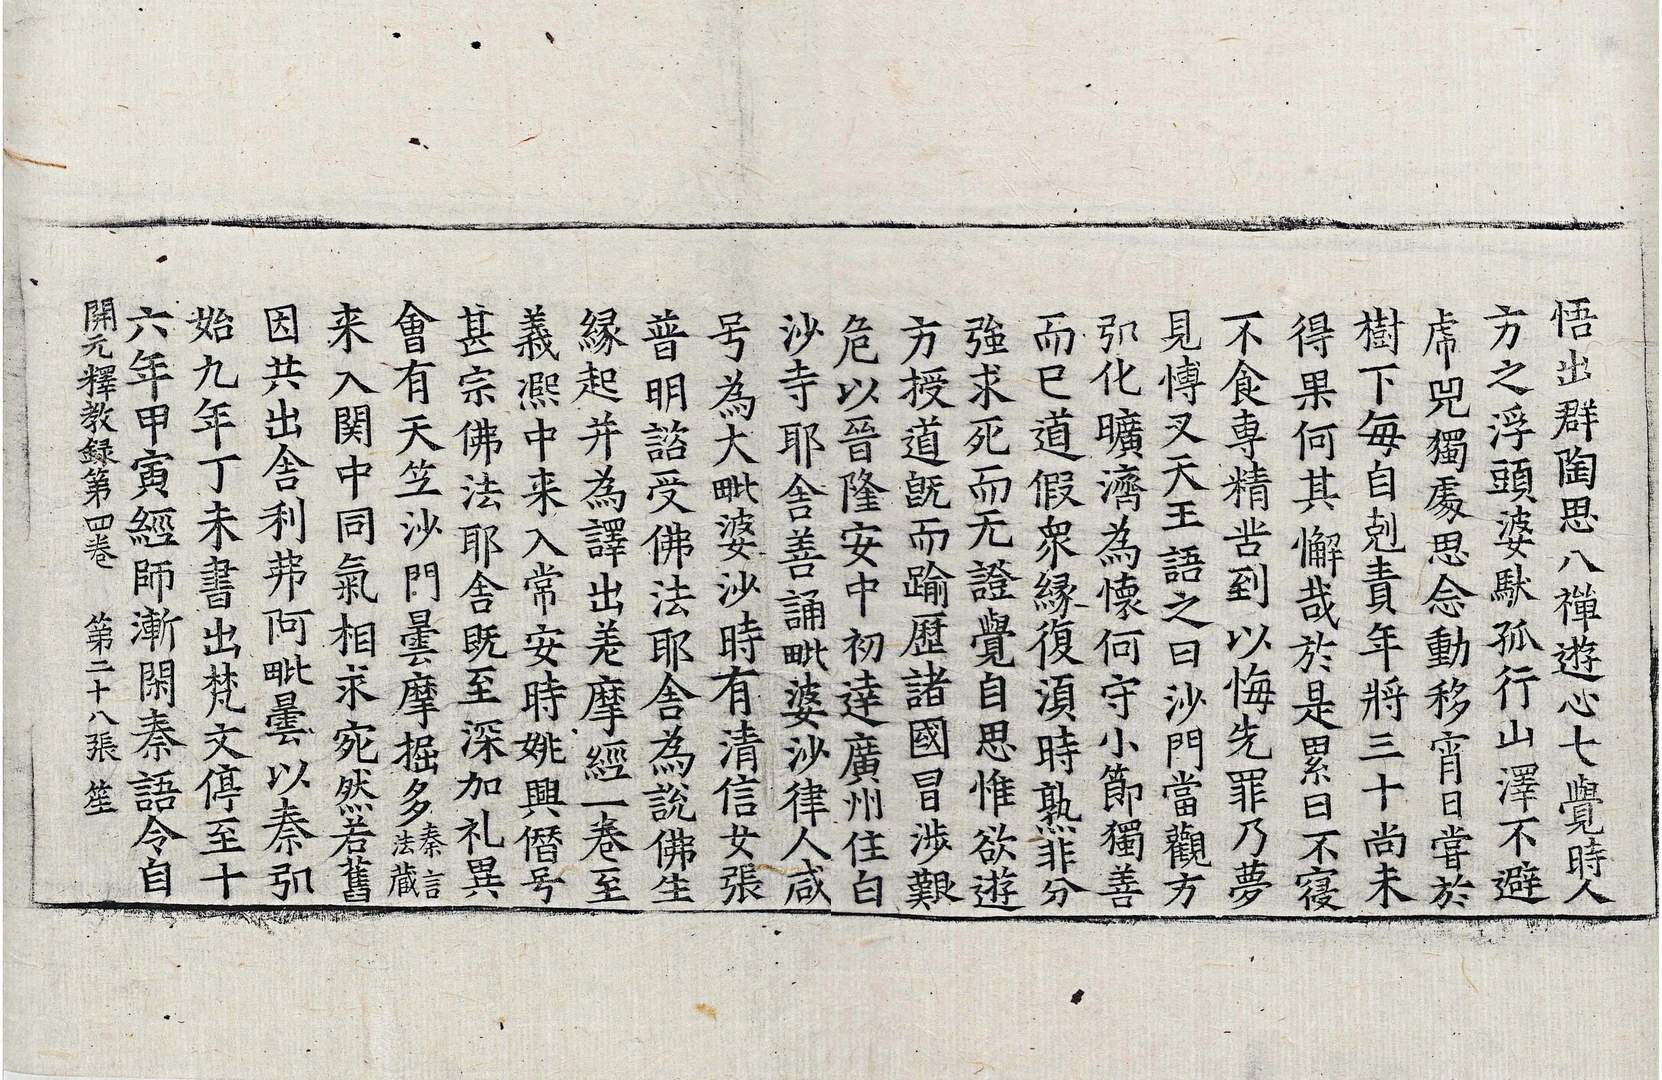 悟出群陶思八禪遊心七覺時人
方之浮頭婆馱孤行山澤不避
虎兕獨處思念動移宵日甞於
樹下每自剋責年將三十尚未
得果何其懈哉於是累日不寑
不食專精苦到以悔先罪乃夢
見愽叉天王語之曰沙門當觀方
弘化曠濟為懷何守小節獨善
而已道假衆緣復湏時熟非分
強求死而无證覺自思惟欲遊
方授道旣而踰歷諸國冒涉艱
危以晉隆安中初達廣州住白
沙寺耶舍善誦毗婆沙律人咸
号為大毗婆沙時有清信女張
普明諮受佛法耶舍為說佛生
緣起并為譯出差摩經一卷至
義熈中来入常安時姚興僭号
甚宗佛法耶舍既至深加礼異
會有天笁沙門曇摩掘多秦言法藏
来入関中同氣相求宛然若舊
因共出舍利弗阿毗曇以秦弘
始九年丁未書出梵文停至十
六年甲寅經師漸閑秦語令自
開元釋教録第四卷　第二十八張　笙